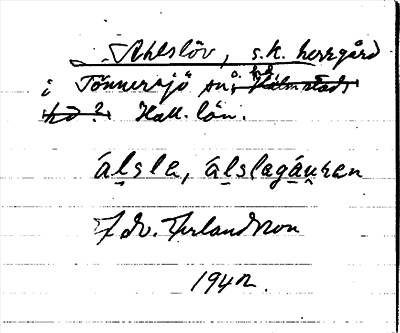 Ahlslöv, s.k. herrgård
i Tönnersjö sn, o. hd Halmstads
hd? Hall. län.
álsle, álslegáuren
Fr. Erlandsson
1942.